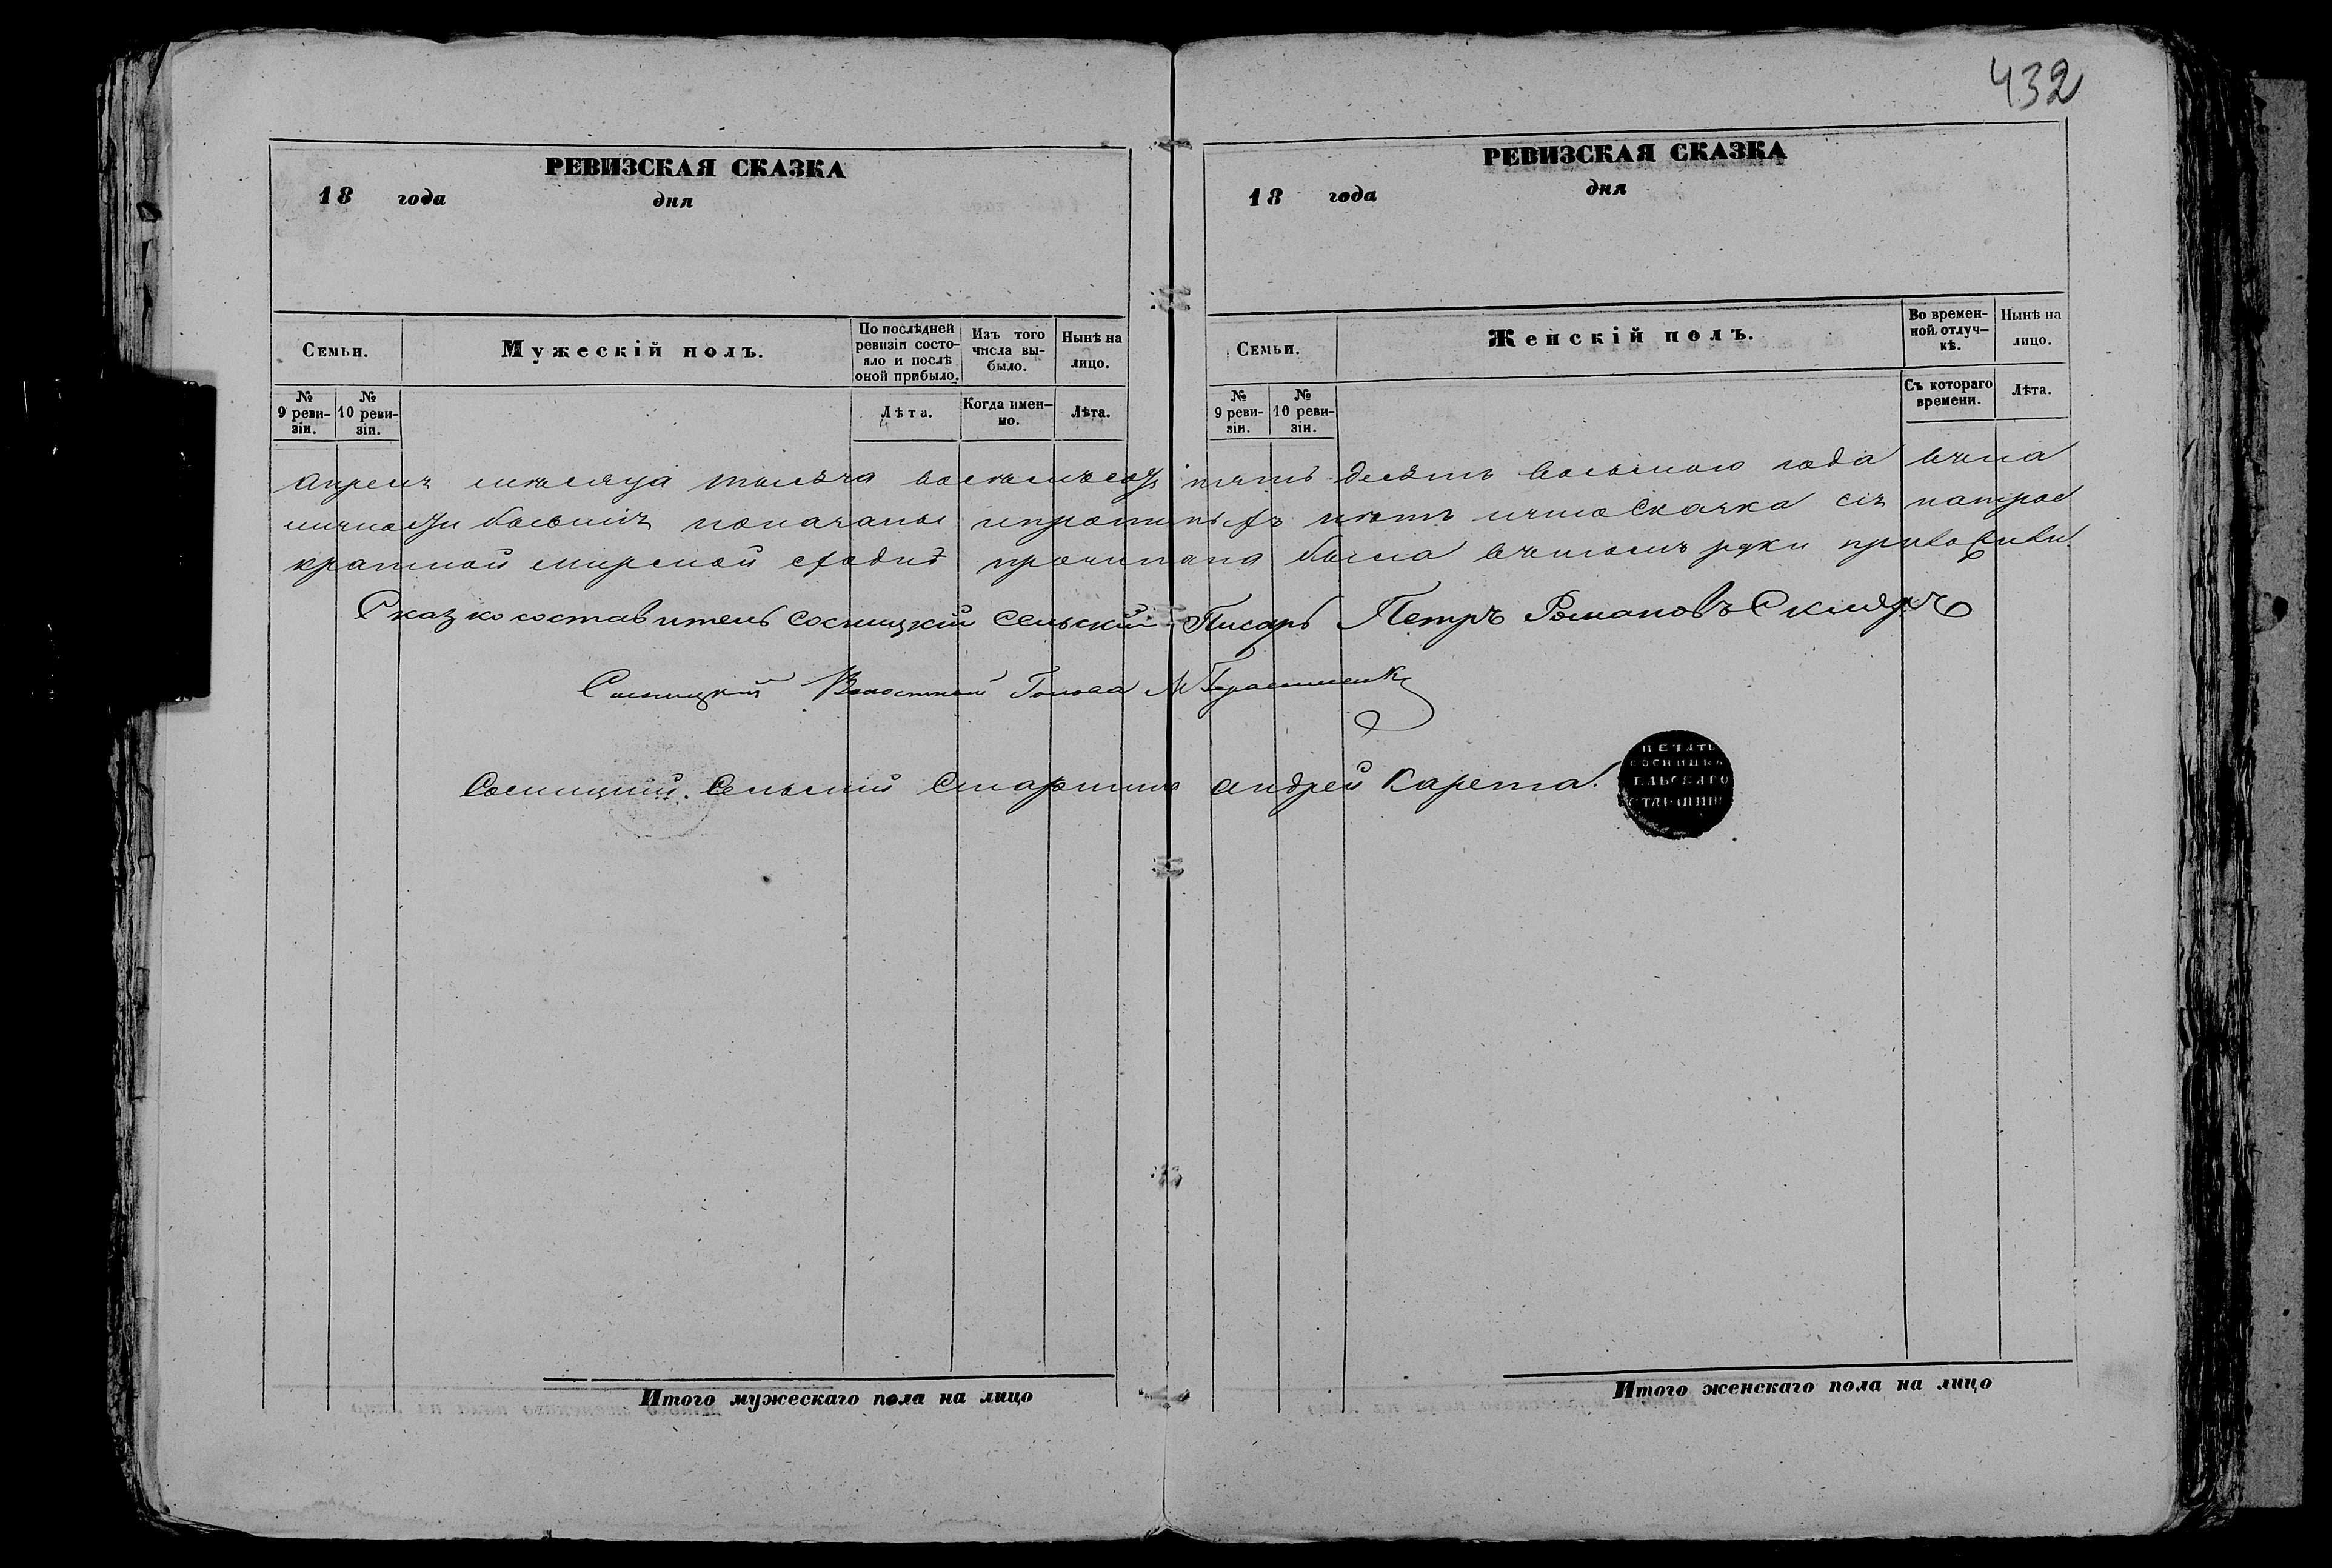 432
РЕВИЗСКАЯ СКАЗКА
18 года дня
Семьи.
Мужескій полъ.
По послѣдней ревизіи состояло и послѣ оной прибыло.
Изъ того числа выбыло.
Нынѣ на лицо.
№ 9 ревизіи.
№ 10 ревизіи.
Лѣта.
Когда именно.
Лѣта.
РЕВИЗСКАЯ СКАЗКА
18 года дня
Семьи.
Женскій полъ.
Во временной отлучкѣ.
Нынѣ на лицо.
№ 9 ревизіи.
№ 10 ревизіи.
Съ котораго времени.
Лѣта.
апреля месяца тысяча восемьсотъ пять десять восьмого года
показаны нѣтъ что Сказка сія
кратной мирской сходкѣ прочитана была въ чемъ руки
Сказкосоставитель Сосницкій Сельскій Писарь Петръ Романовъ
Сосницкій Волостной Голова М Герасименко
Сосницкій Сельскій Старшина Андрей Карета
ПЕЧАТЬ
Итого мужескаго пола на лицо
Итого женскаго пола на лицо